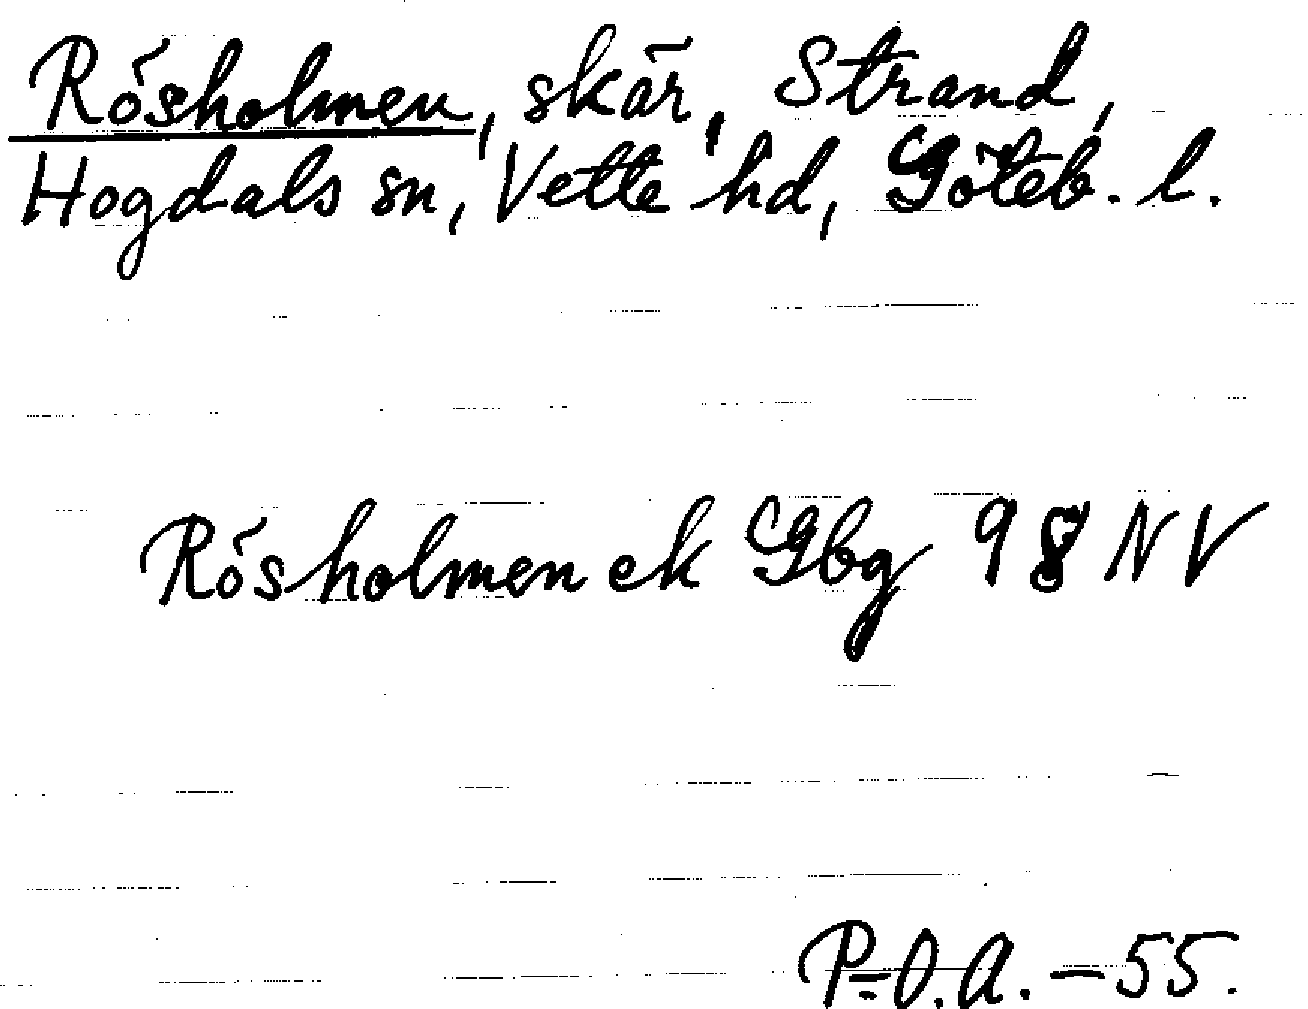 Rösholmen, skär, Strand,
Hogdals sn, Vette hd, Göteb. l.
Rösholmen ek Gbg 98 NV
P-O.A. - 55.